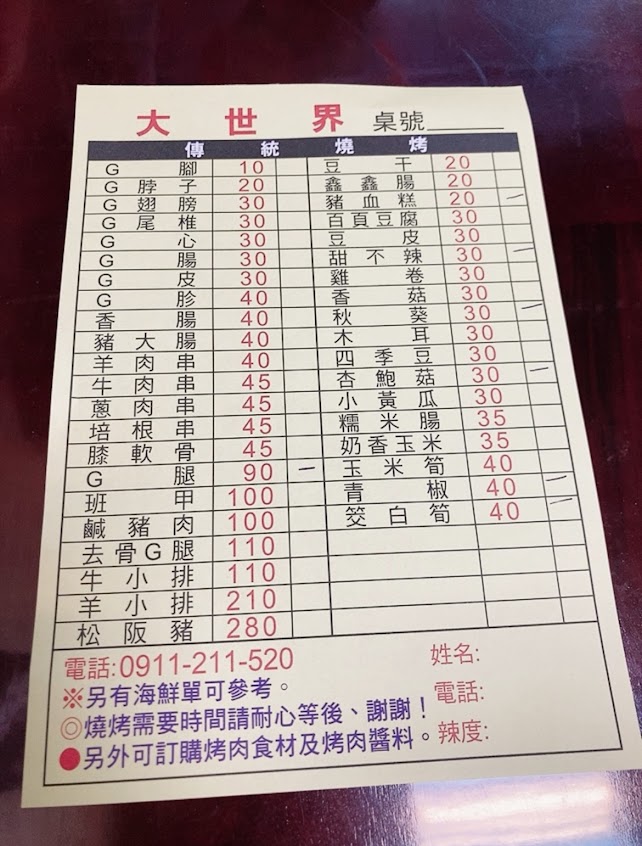 大世界 桌號
傳統燒烤
G腳 10 豆干 20
G脖子 20 鑫鑫腸 20
G翅膀 30 豬血糕 20
G尾椎 30 百頁豆腐 30
G心 30 豆皮 30
G腸 30 甜不辣 30
G皮 30 雞卷 30
G胗 40 香菇 30
香腸 40 秋葵 30
豬大腸 40 木耳 30
羊肉串 40 四季豆 30
牛肉串 45 杏鮑菇 30
蔥肉串 45 小黃瓜 30
培根串 45 糯米腸 35
膝軟骨 45 奶香玉米 35
G腿 90 一 玉米筍 40
班甲 100 青椒 40
鹹豬肉 100 筊白筍 40
去骨G腿 110
牛小排 110
羊小排 210
松阪豬 280
電話:0911-211-520
※另有海鮮單可參考。
◎燒烤需要時間請耐心等後、謝謝！
●另外可訂購烤肉食材及烤肉醬料。
姓名:
電話:
辣度: